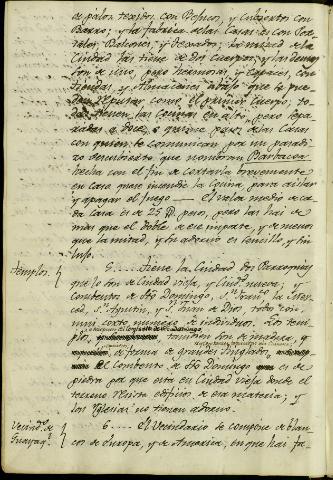 de palos texidos con Besucos, y cubiertos con
Barro; y la fabrica de las Casas es con Por-
tales, Balcones, y Texados: la mitad de la
Ciudad las tiene de dos cuerpos, y las demas
son de uno, pero hermosas y capaces, con
tiendas, y Almacenes abajo que se pue-
den reputar como el primer Cuerpo; to-
das tienen las cocinas en alto, pero sepa-
radas a doce, o quince pasos de las Casas
con quien se comunican por un pasadi-
zo descubierto, que nombran Barbacoa
hecha con el fin de cortarla brevemente
en caso que se incendie la Cocina para aislar
y apagar el fuego — El valor medio de ca-
da Casa es de 25 pesos, pero las hai de
mas que el doble de ese importe, y de menos
que la mitad, y su adorno es sencillo, y sin
lujo.
Templos. 5.... Tiene la Ciudad dos Parroquias
que lo son de Ciudad vieja, y Ciud. nueva; y
Conventos de Sto Domingo, Sn Franco, la Mer-
ced, S. Agustin, y S. Juan de Dios, todos con
mui corto numero de individuos. Los tem-
plos, tambien son de madera, y
de forma de grandes
El Convento de Sto Domingo es de
piedra por que esta en Ciudad Vieja donde el
terreno resiste edificios de esa materia; y
las Iglesias no tienen adorno.
Vecindo de
Guayaql. 6.... El Vecindario se compone de blan-
cos de Europa, y de America, en que hai fa-